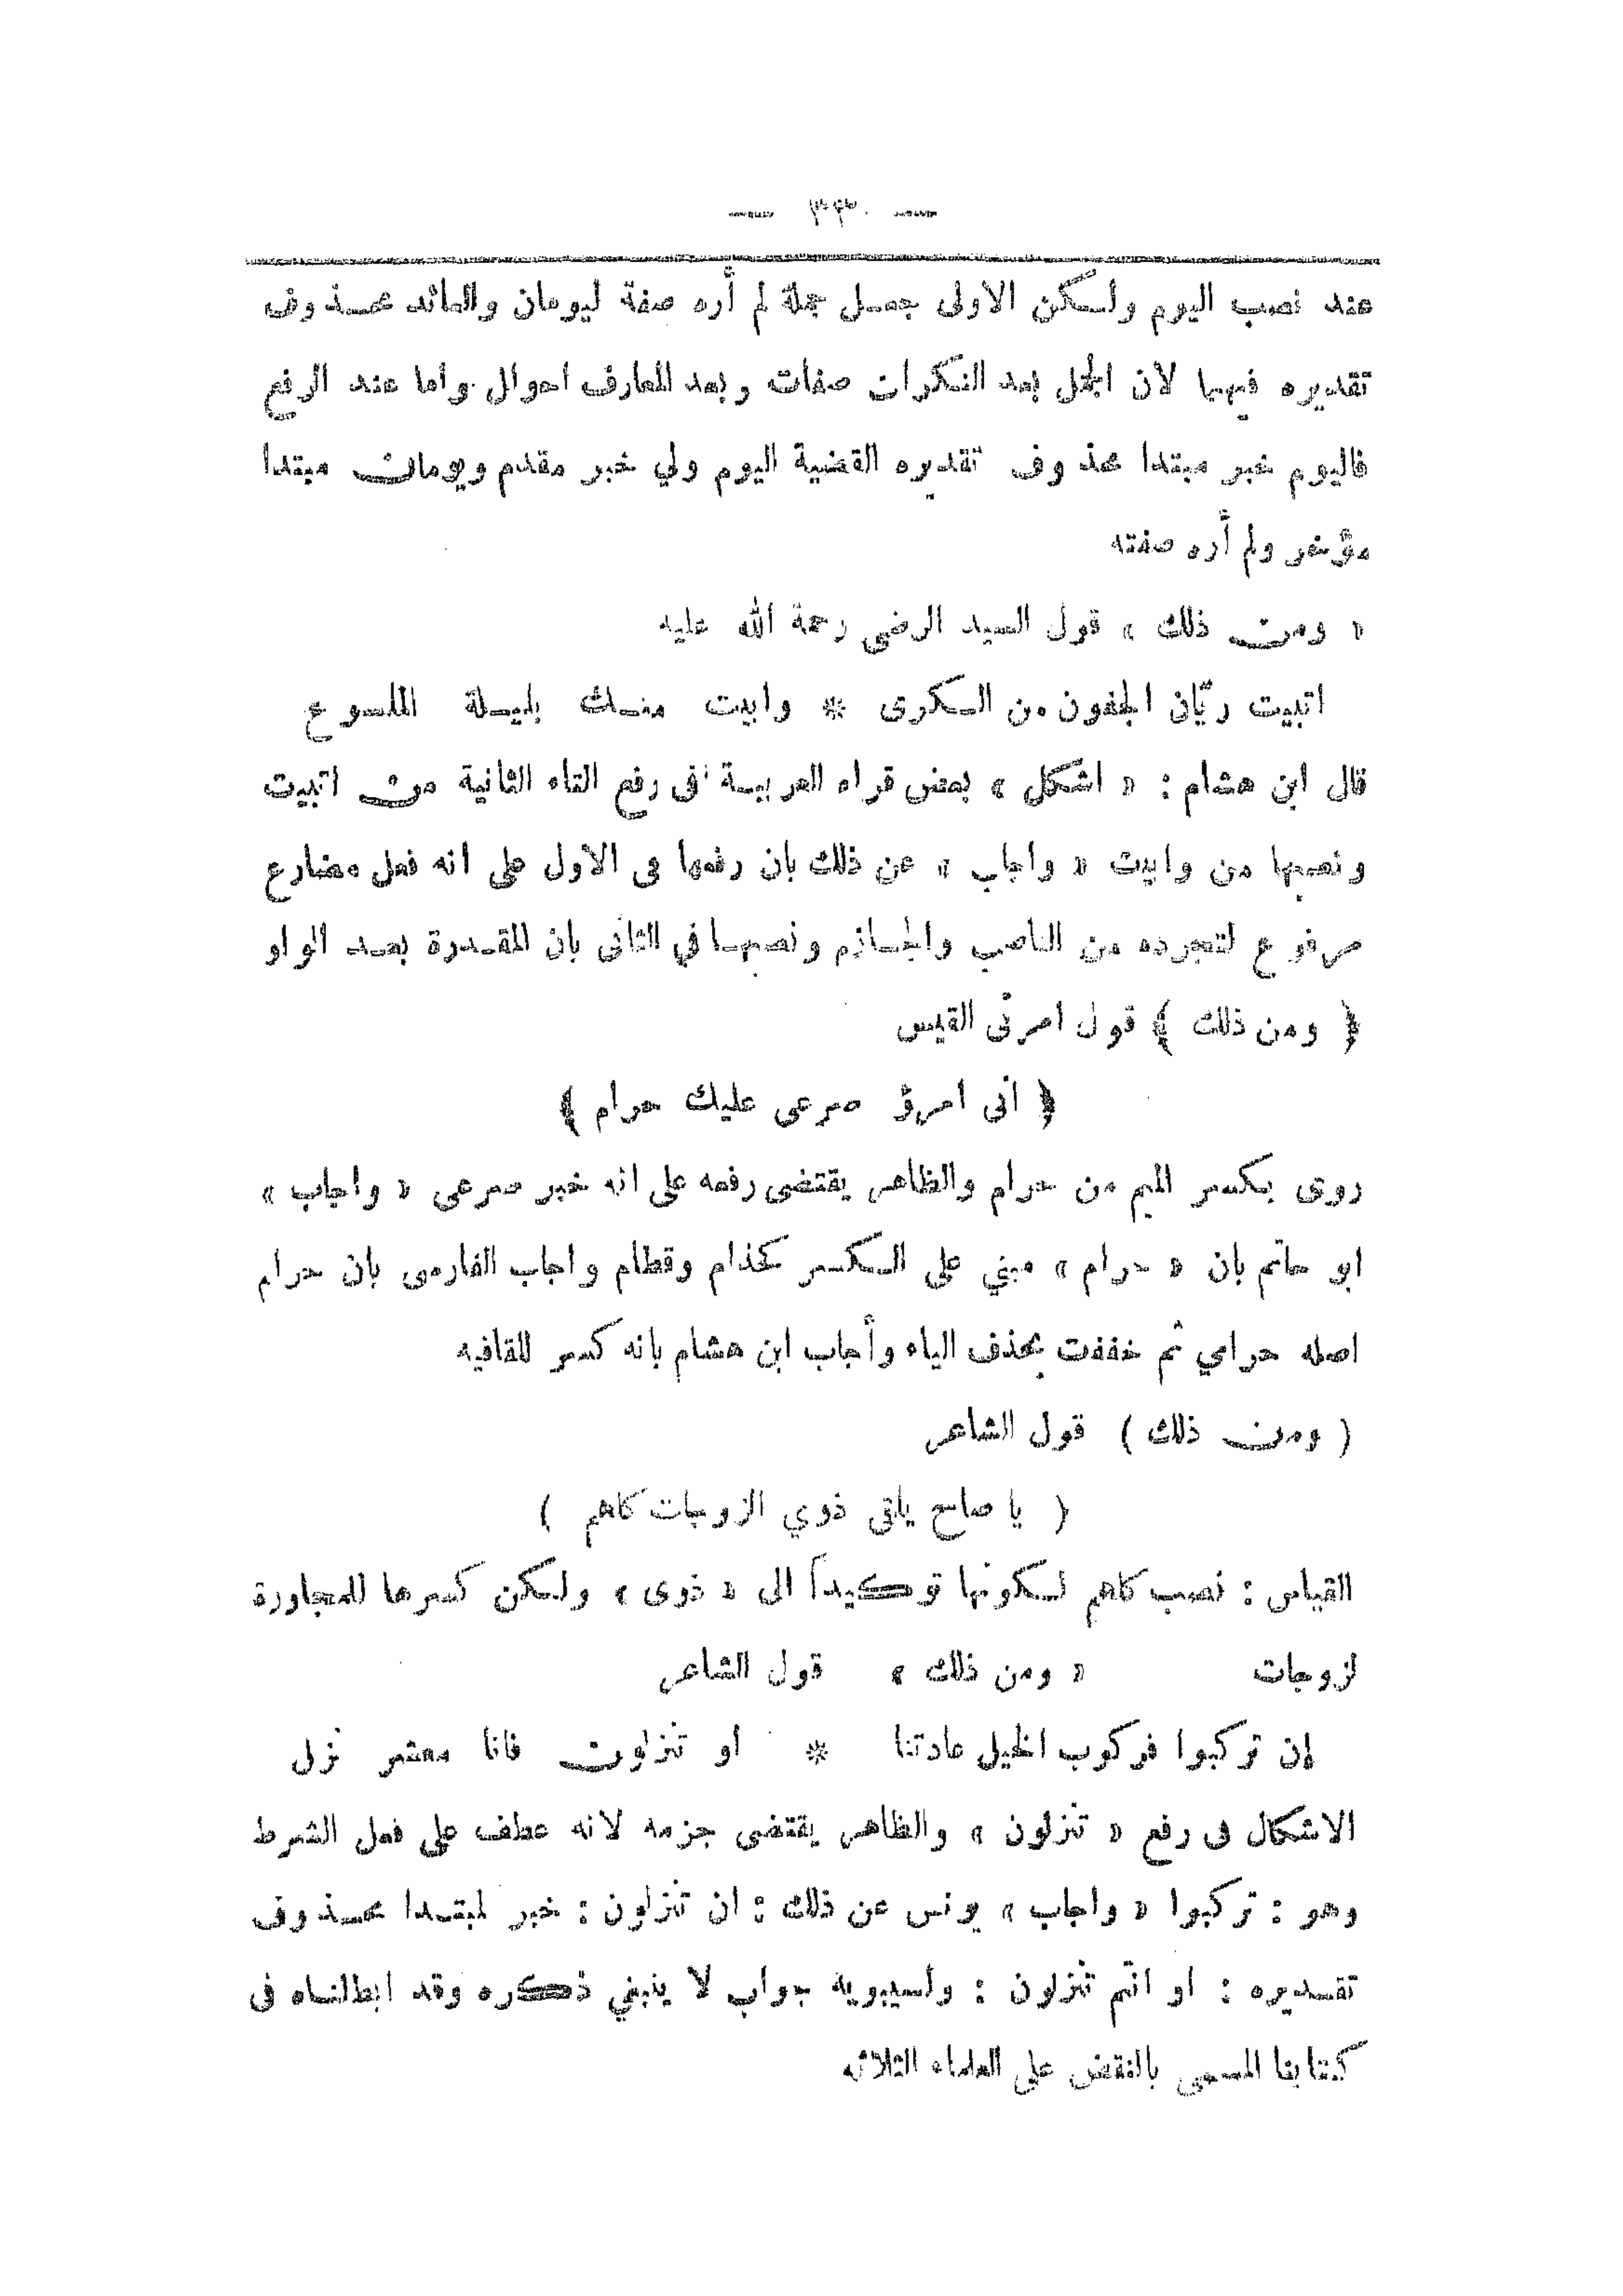 عند نصب اليوم ولكن الاولى جعل جملة لم أره صفة ليومان والعائد محذوف
تقديره فيهما لان الجمل بعد النكرات صفات وبعد المعارف احوال واما عند الرفع
فاليوم خبر مبتدا محذوف تقديره القضية اليوم ولي خبر مقدم ويومان مبتدا
مؤخر ولم أره صفته
« ومن ذلك » قول السيد الرضى رحمة الله عليه
اتبيت ريّان الجفون من الكرى * وابيت منك بليلة الملسوع
قال ابن هشام : « اشكل » بعض قراء العربية فى رفع التاء الثانية من اتبيت
ونصبها من وابيت « واجاب » عن ذلك بان رفعها فى الاول على انه فعل مضارع
مرفوع لتجرده من الناصب والجازم ونصبها في الثانى بان المقدرة بعد الواو
﴿ ومن ذلك ﴾ قول امرئى القيس
﴿ انى امرؤ صرعى عليك حرام ﴾
روى بكسر الميم من حرام والظاهر يقتضى رفعه على انه خبر صرعى « واجاب »
ابو حاتم بان « حرام » مبني على الكسر كحذام وقطام واجاب الفارسى بان حرام
اصله حرامي ثم خففت بحذف الياء وأجاب ابن هشام بانه كسر للقافيه
( ومن ذلك ) قول الشاعر
( يا صاح بلغ ذوي الزوجات كلهم )
القياس : نصب كلهم لكونها توكيداً الى « ذوى » ولكن كسرها للمجاورة
لزوجات « ومن ذلك » قول الشاعر
إن تركبوا فركوب الخيل عادتنا * او تنزلون فانا معشر نزل
الاشكال فى رفع « تنزلون » والظاهر يقتضى جزمه لانه عطف على فعل الشرط
وهو : تركبوا « واجاب » يونس عن ذلك : ان تنزلون : خبر لمبتدا محذوف
تقديره : او انتم تنزلون : ولسيبويه جواب لا ينبغي ذكره وقد ابطلناه فى
كتابنا المسمى بالنقض على العلماء الثلاثه